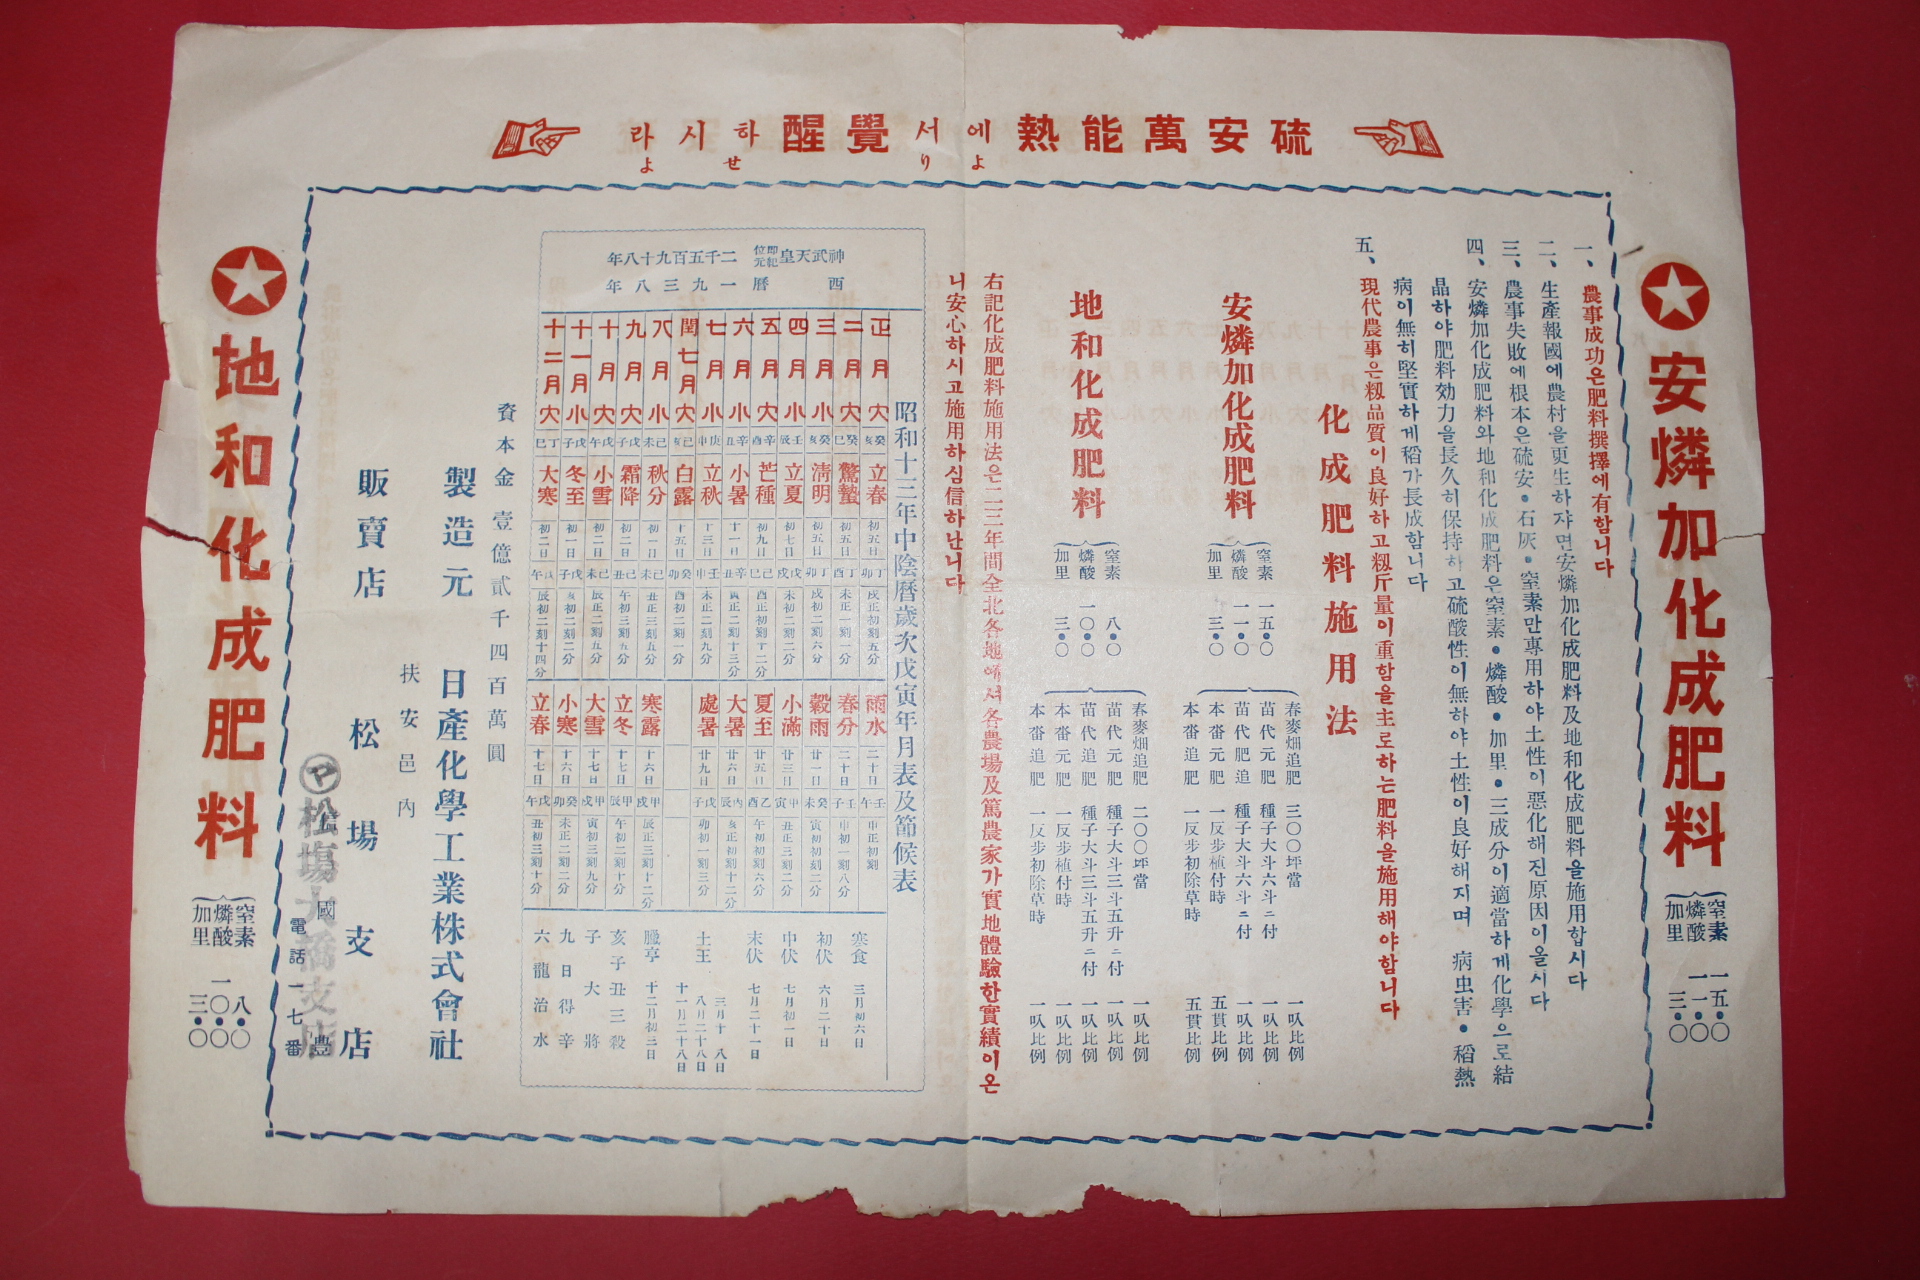 硫安萬能熱에서覺醒하시라
より せよ
安燐加化成肥料
窒素 一五・〇
燐酸 一一・〇
加里 三・〇
一、農事成功은肥料撰擇에有함니다
二、生產報國에農村을更生하쟈면安燐加化成肥料及地和化成肥料을施用합시다
三、農事失敗에根本은硫安・石灰・窒素만專用하야土性이惡化해진原因이올시다
四、安燐加化成肥料와地和化成肥料은窒素・燐酸・加里・三成分이適當하게化學으로結
晶하야肥料効力을長久히保持하고硫酸性이無하야土性이良好해지며 病虫害・稻熱
病이無히堅實하게稻가長成함니다
五、現代農事은籾品質이良好하고籾斤量이重함을主로하는肥料을施用해야함니다
化成肥料施用法
安燐加化成肥料
窒素 一五・〇
燐酸 一一・〇
加里 三・〇
春麥畑追肥 三〇〇坪當 一叺比例
苗代元肥 種子大斗六斗ニ付 一叺比例
苗代肥追 種子大斗六斗ニ付 一叺比例
本畓元肥 一反步植付時 五貫比例
本畓追肥 一反步初除草時 五貫比例
地和化成肥料
窒素 八・〇
燐酸 一〇・〇
加里 三・〇
春麥畑追肥 二〇〇坪當 一叺比例
苗代元肥 種子大斗三斗五升ニ付 一叺比例
苗代追肥 種子大斗三斗五升ニ付 一叺比例
本畓元肥 一反步植付時 一叺比例
本畓追肥 一反步初除草時 一叺比例
右記化成肥料施用法은二三年間全北各地에서各農場及篤農家가實地體驗한實績이온
니安心하시고施用하심信하난니다
昭和十三年中陰曆歲次戊寅年月表及節候表
神武天皇即位紀元二千五百九十八年
西曆一九三八年
正月大 癸亥 立春 初五日 丁卯 戌正初刻五分 雨水 二十日 壬午 申正初刻
二月大 癸巳 驚蟄 初五日 丁酉 未正一刻一分 春分 二十日 壬子 申初一刻八分
三月小 癸亥 淸明 初五日 丁卯 戌初二刻六分 穀雨 廿一日 癸未 寅初初刻二分
四月小 壬辰 立夏 初七日 戊戌 未初二刻二分 小滿 廿三日 甲寅 丑正三刻二分
五月大 辛酉 芒種 初九日 己巳 酉正初刻十二分 夏至 廿五日 乙酉 午初初刻六分
六月小 辛丑 小暑 十一日 辛丑 寅正二刻十三分 大暑 廿六日 丙辰 亥正初刻十二分
七月小 庚申 立秋 十三日 壬申 未正二刻九分 處暑 廿九日 戊子 卯初一刻三分
閏七月大 己亥 白露 十五日 癸卯 酉初二刻一分
八月小 己未 秋分 初一日 己未 丑正三刻五分 寒露 十六日 甲戌 辰正三刻十二分
九月大 戊子 霜降 初二日 己丑 午初三刻五分 立冬 十七日 甲辰 午初二刻十分
十月大 戊午 小雪 初二日 己未 辰正二刻五分 大雪 十七日 甲戌 寅初三刻九分
十一月小 戊子 冬至 初一日 戊子 亥初二刻二分 小寒 十六日 癸卯 未正二刻二分
十二月大 丁巳 大寒 初二日 戊午 辰初二刻十四分 立春 十七日 戊午 丑初三刻十分
寒食 三月初六日
初伏 六月二十日
中伏 七月初一日
末伏 七月二十一日
土王 三月十八日
八月二十八日
十一月二十八日
臘亨 十二月初三日
亥子丑三殺
子大將
九日得辛
六龍治水
資本金壹億貳千四百萬圓
製造元 日產化學工業株式會社
扶安邑內
販賣店 松場支店
國豊
電話一七番
マ松場大橋支店
地和化成肥料
窒素 八・〇
燐酸 一〇・〇
加里 三・〇